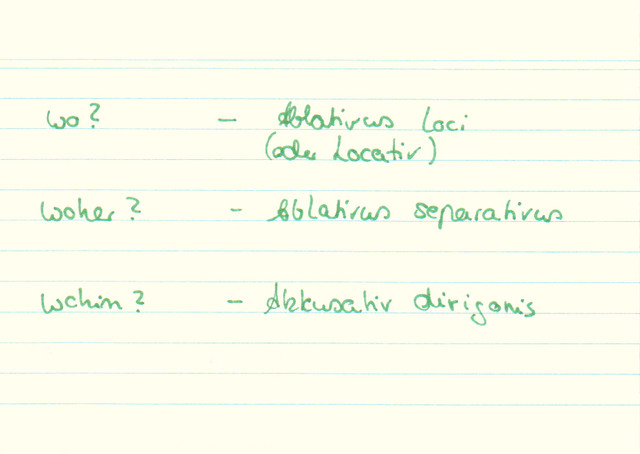 wo? - Ablativus Loci
(oder Locativ)
woher? - Ablativus separativus
wohin? - Akkusativ dirigonis